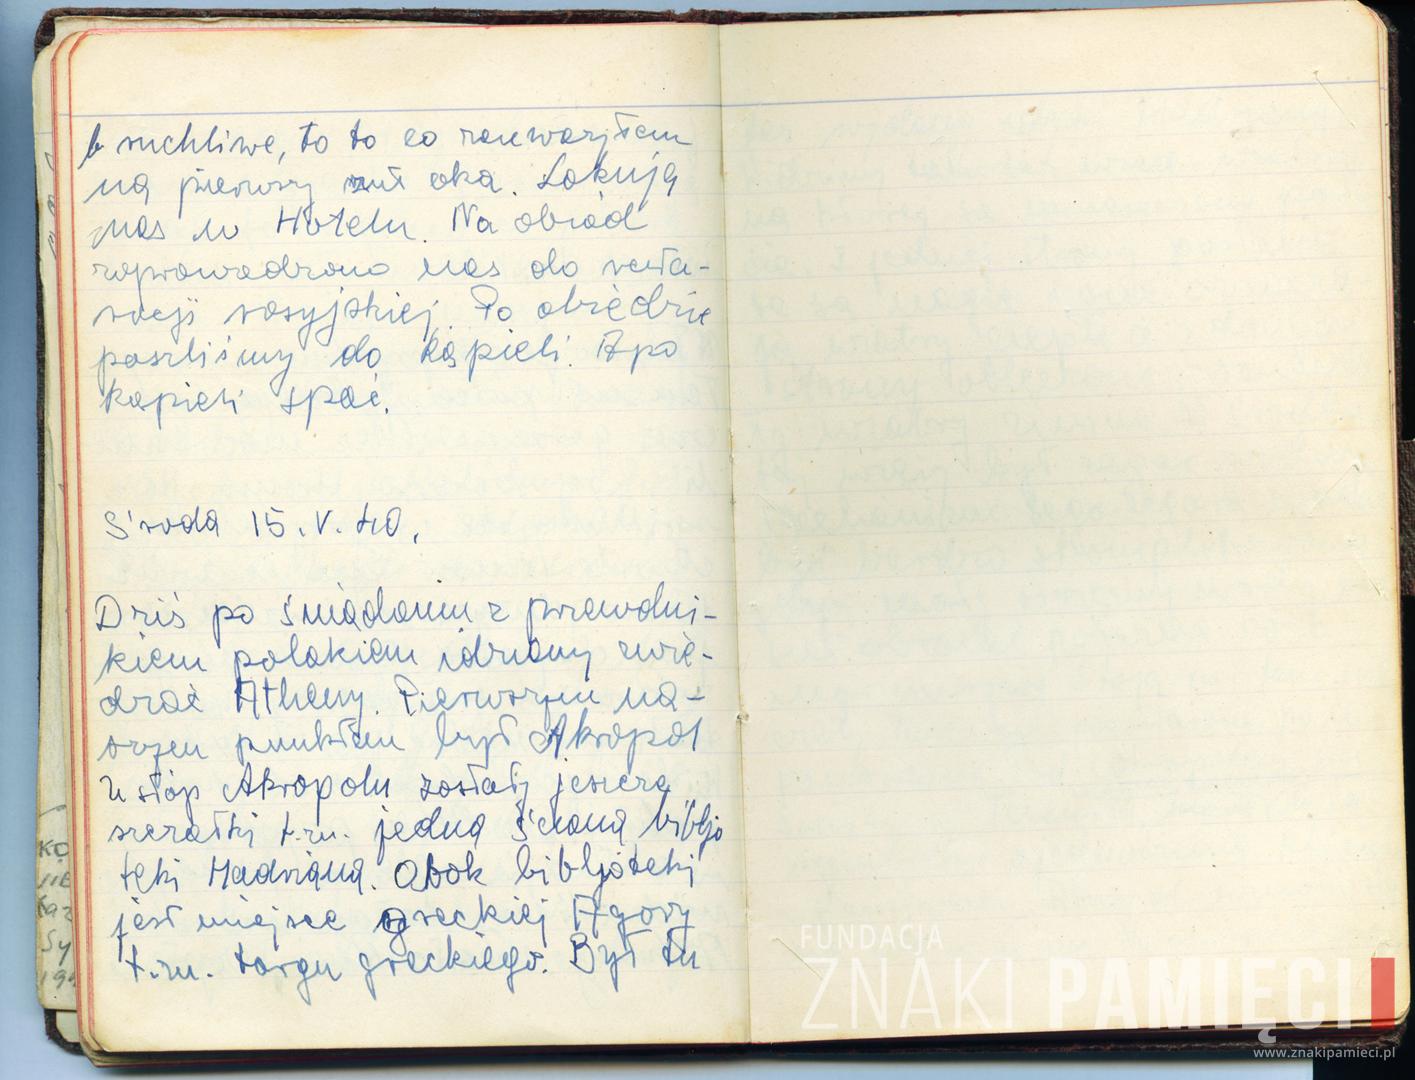 b ruchliwe, to to co zauważyłem
na pierwszy rzut oka. Lokują
nas w Hotelu. Na obiad
zaprowadzono nas do restau-
racji rosyjskiej. Po obiedzie
poszliśmy do kąpieli. A po
kąpieli spać.
Środa 15.V.40.
Dziś po śniadaniu z przewodni-
kiem polakiem idziemy zwie-
dzać Atheny. Pierwszym na-
szym punktem był Akropol
U stóp Akropolu zostały jeszcze
szczątki t.zn. jedna ściana bibljo
teki Hadriana. Obok bibljoteki
jest miejsce greckiej Agory
t.zn. targu greckiego. Był tu
KO
Kaz
Sy
FUNDACJA
ZNAKI PAMIĘCI
www.znakipamieci.pl